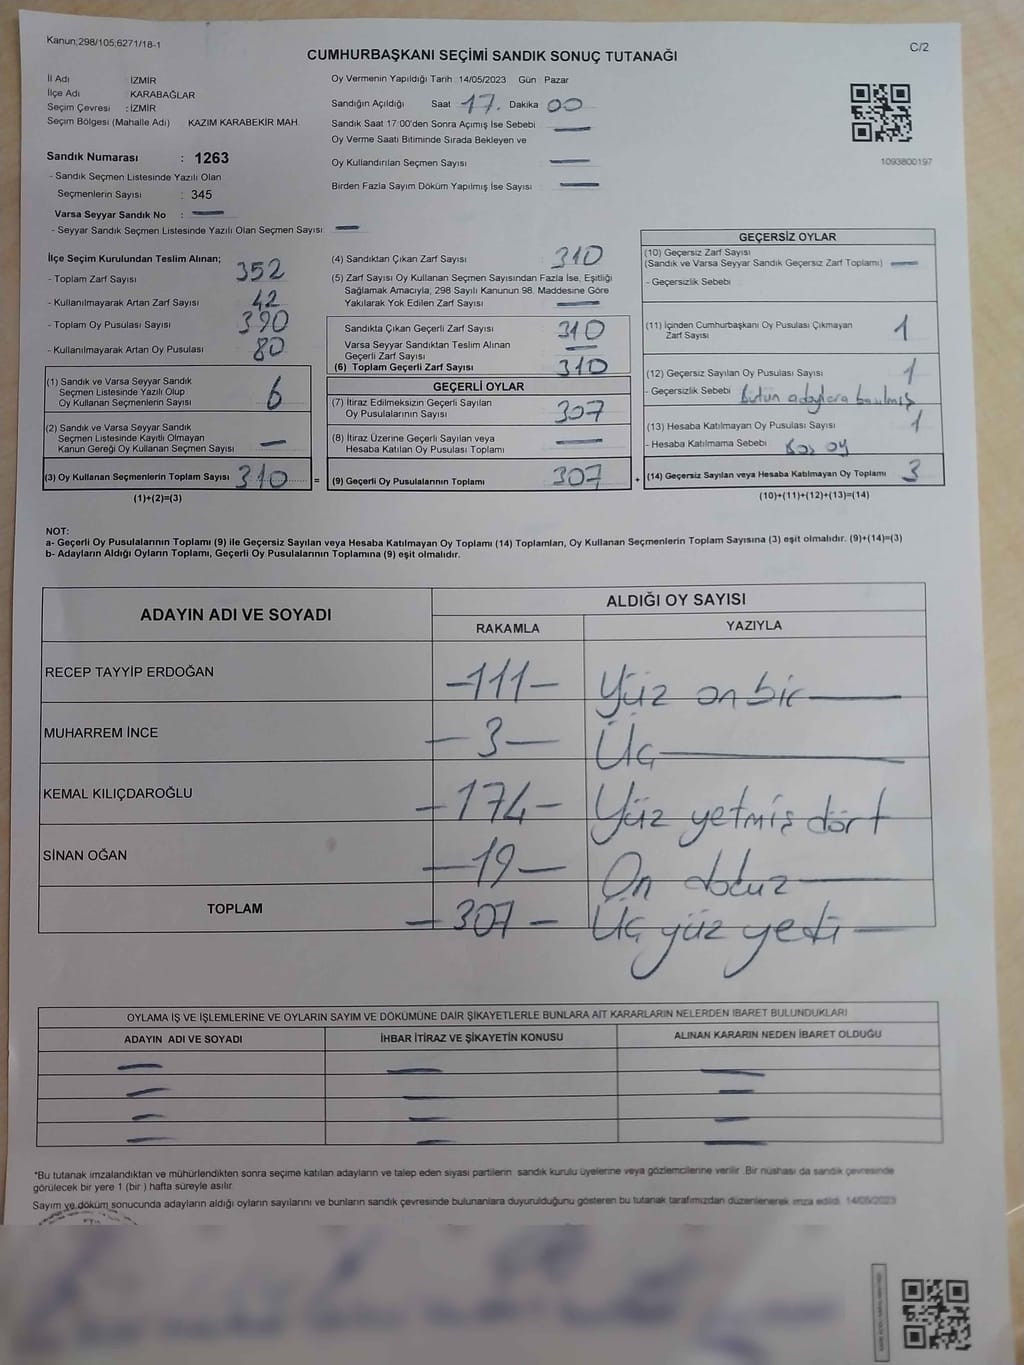 Kanun;298/105;6271/18-1
C/2
CUMHURBAŞKANI SEÇİMİ SANDIK SONUÇ TUTANAĞI
İl Adı : İZMİR
İlçe Adı : KARABAĞLAR
Seçim Çevresi : İZMİR
Seçim Bölgesi (Mahalle Adı) KAZIM KARABEKİR MAH.
Oy Vermenin Yapıldığı Tarih :14/05/2023 Gün : Pazar
Sandığın Açıldığı Saat 17. Dakika 00
Sandık Saat 17:00'den Sonra Açımış İse Sebebi : —
Oy Verme Saati Bitiminde Sırada Bekleyen ve
Oy Kullandırılan Seçmen Sayısı : —
Birden Fazla Sayım Döküm Yapılmış İse Sayısı : —
1093800197
Sandık Numarası : 1263
- Sandık Seçmen Listesinde Yazılı Olan
Seçmenlerin Sayısı : 345
Varsa Seyyar Sandık No : —
- Seyyar Sandık Seçmen Listesinde Yazılı Olan Seçmen Sayısı : —
İlçe Seçim Kurulundan Teslim Alınan;
- Toplam Zarf Sayısı : 352
- Kullanılmayarak Artan Zarf Sayısı : 42
- Toplam Oy Pusulası Sayısı : 390
- Kullanılmayarak Artan Oy Pusulası : 80
(1) Sandık ve Varsa Seyyar Sandık
Seçmen Listesinde Yazılı Olup
Oy Kullanan Seçmenlerin Sayısı : 6
(2) Sandık ve Varsa Seyyar Sandık
Seçmen Listesinde Kayıtlı Olmayan
Kanun Gereği Oy Kullanan Seçmen Sayısı : —
(3) Oy Kullanan Seçmenlerin Toplam Sayısı : 310 =
(1)+(2)=(3)
(4) Sandıktan Çıkan Zarf Sayısı : 310
(5) Zarf Sayısı Oy Kullanan Seçmen Sayısından Fazla İse, Eşitliği
Sağlamak Amacıyla; 298 Sayılı Kanunun 98. Maddesine Göre
Yakılarak Yok Edilen Zarf Sayısı : —
Sandıkta Çıkan Geçerli Zarf Sayısı : 310
Varsa Seyyar Sandıktan Teslim Alınan
Geçerli Zarf Sayısı : —
(6) Toplam Geçerli Zarf Sayısı : 310
GEÇERLİ OYLAR
(7) İtiraz Edilmeksizin Geçerli Sayılan
Oy Pusulalarının Sayısı : 307
(8) İtiraz Üzerine Geçerli Sayılan veya
Hesaba Katılan Oy Pusulası Toplamı : —
(9) Geçerli Oy Pusulalarının Toplamı : 307 +
GEÇERSİZ OYLAR
(10) Geçersiz Zarf Sayısı
(Sandık ve Varsa Seyyar Sandık Geçersiz Zarf Toplamı) : —
- Geçersizlik Sebebi :
(11) İçinden Cumhurbaşkanı Oy Pusulası Çıkmayan
Zarf Sayısı : 1
(12) Geçersiz Sayılan Oy Pusulası Sayısı : 1
- Geçersizlik Sebebi : bütün adaylara basılmış
(13) Hesaba Katılmayan Oy Pusulası Sayısı : 1
- Hesaba Katılmama Sebebi : Boş oy
(14) Geçersiz Sayılan veya Hesaba Katılmayan Oy Toplamı : 3
(10)+(11)+(12)+(13)=(14)
NOT:
a- Geçerli Oy Pusulalarının Toplamı (9) ile Geçersiz Sayılan veya Hesaba Katılmayan Oy Toplamı (14) Toplamları, Oy Kullanan Seçmenlerin Toplam Sayısına (3) eşit olmalıdır. (9)+(14)=(3)
b- Adayların Aldığı Oyların Toplamı, Geçerli Oy Pusulalarının Toplamına (9) eşit olmalıdır.
ADAYIN ADI VE SOYADI
ALDIĞI OY SAYISI
RAKAMLA YAZIYLA
RECEP TAYYİP ERDOĞAN —111— Yüz on bir —
MUHARREM İNCE — 3 — Üç —
KEMAL KILIÇDAROĞLU —174— Yüz yetmiş dört
SİNAN OĞAN —19— On dokuz —
TOPLAM — 307 — Üç yüz yedi —
OYLAMA İŞ VE İŞLEMLERİNE VE OYLARIN SAYIM VE DÖKÜMÜNE DAİR ŞİKAYETLERLE BUNLARA AİT KARARLARIN NELERDEN İBARET BULUNDUKLARI
ADAYIN ADI VE SOYADI İHBAR İTİRAZ VE ŞİKAYETİN KONUSU ALINAN KARARIN NEDEN İBARET OLDUĞU
— — —
— — —
— — —
— — —
*Bu tutanak imzalandıktan ve mühürlendikten sonra seçime katılan adayların ve talep eden siyasi partilerin sandık kurulu üyelerine veya gözlemcilerine verilir. Bir nüshası da sandık çevresinde
görülecek bir yere 1 (bir ) hafta süreyle asılır.
Sayım ve döküm sonucunda adayların aldığı oyların sayılarını ve bunların sandık çevresinde bulunanlara duyurulduğunu gösteren bu tutanak tarafımızdan düzenlenerek imza edildi. 14/05/2023